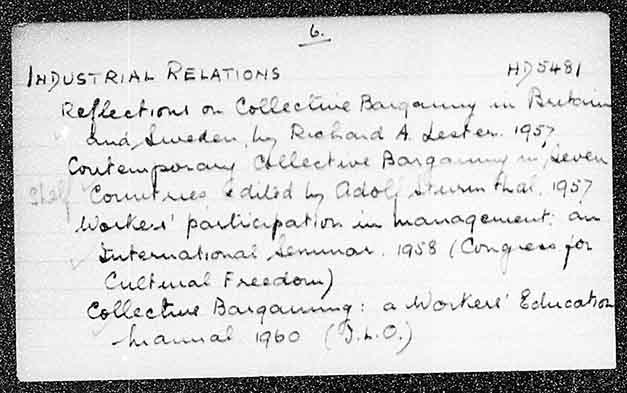 6.
INDUSTRIAL RELATIONS HD5481
Reflections on Collective Bargaining in Britain
and Sweden, by Richard A. Lester. 1957
Contemporary Collective Bargaining in Seven
Shelf Countries, edited by Adolf Sturmthal. 1957
Workers' participation in management: an
International Seminar. 1958 (Congress for
Cultural Freedom)
Collective Bargaining: a Workers' Education
Manual 1960 (I.L.O.)